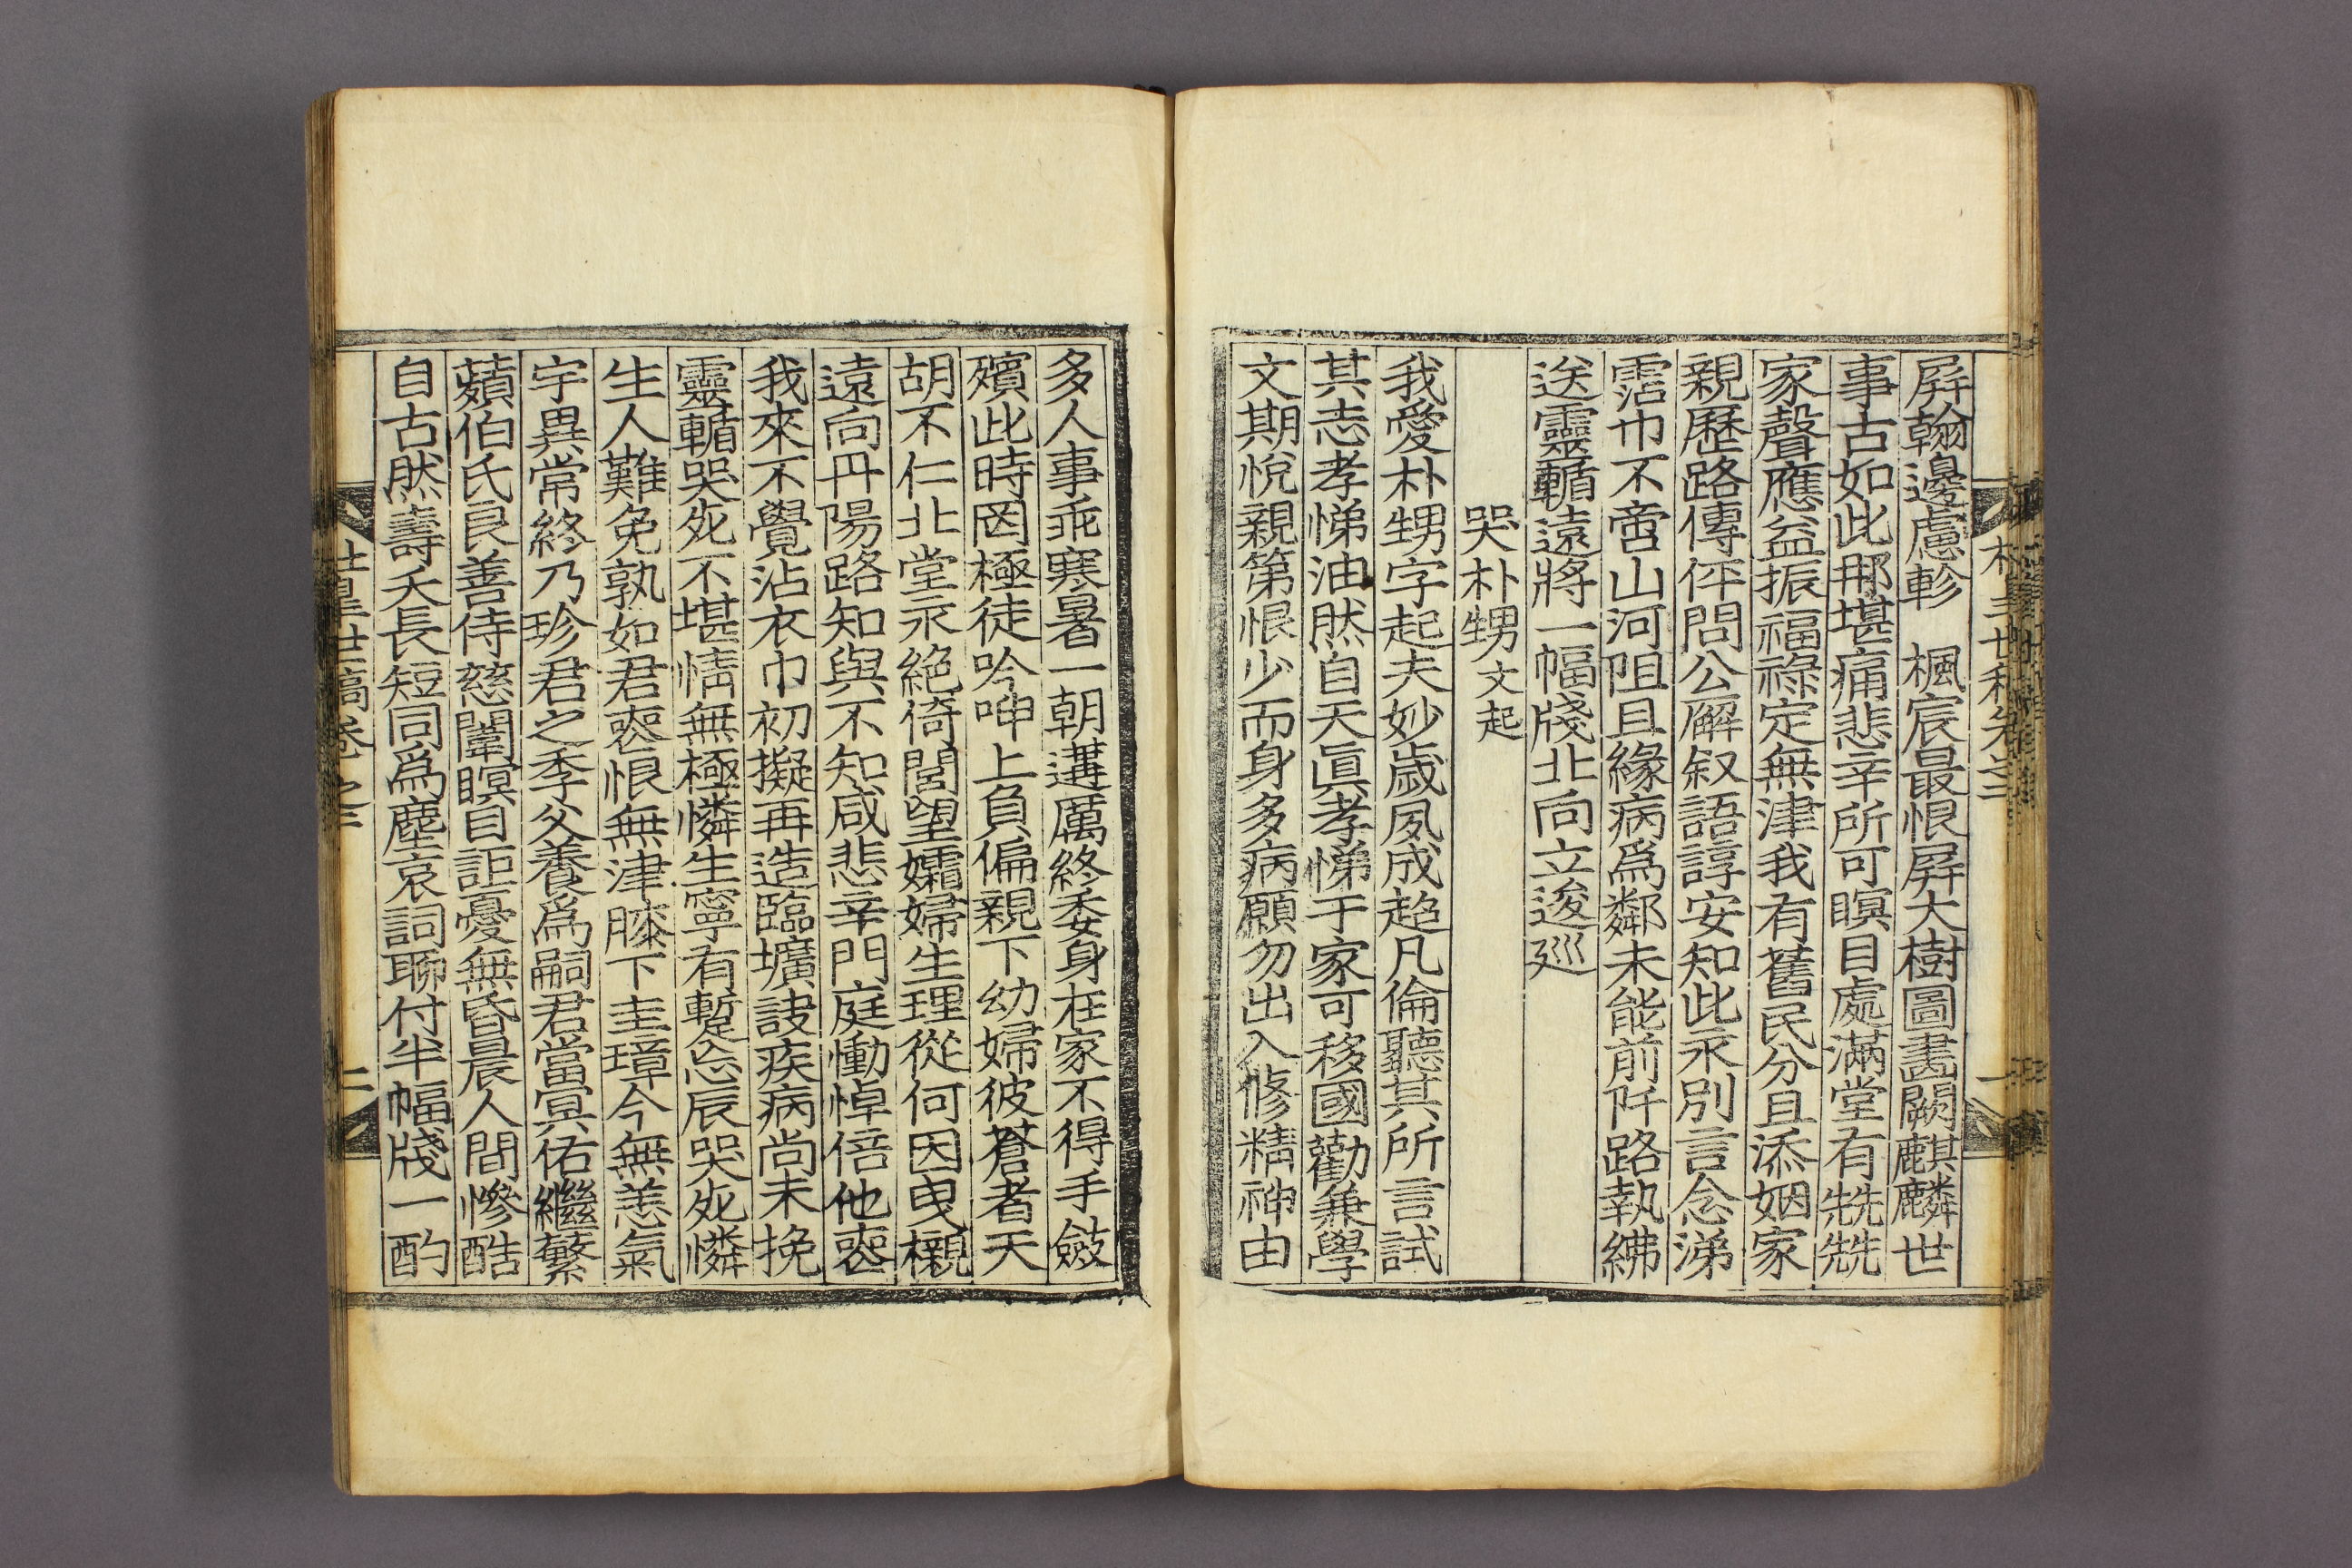 屛翰邊慮軫　楓宸最恨屛大樹圖畵闕麒麟世
事古如此那堪痛悲辛所可瞑目處滿堂有兟兟
家聲應益振福祿定無津我有舊民分且添姻家
親歷路傳伻問公廨叙語諄安知此永別言念涕
霑巾不啻山河阻且緣病爲鄰未能前阡路執紼
送靈輴遠將一幅牋北向立逡巡
哭朴甥文起
我愛朴甥字起夫妙歲夙成趍凡倫聽其所言試
其志孝悌油然自天眞孝悌于家可移國勸兼學
文期悅親第恨少而身多病願勿出入修精神由
多人事乖寒暑一朝遘厲終委身在家不得手斂
殯此時罔極徒吟呻上負偏親下幼婦彼蒼者天
胡不仁北堂永絶倚閭望孀婦生理從何因曳櫬
遠向丹陽路知與不知咸悲辛門庭慟悼倍他喪
我來不覺沾衣巾初擬再造臨壙訣疾病尚未挽
靈輴哭死不堪情無極憐生寧有蹔忘辰哭死憐
生人難免孰如君喪恨無津膝下圭璋今無恙氣
宇異常終乃珍君之季父養爲嗣君當冥佑繼蘩
蘋伯氏良善侍慈闈瞑目詎憂無昏晨人間慘酷
自古然壽夭長短同爲塵哀詞聊付半幅牋一酌
世稿卷之三
二